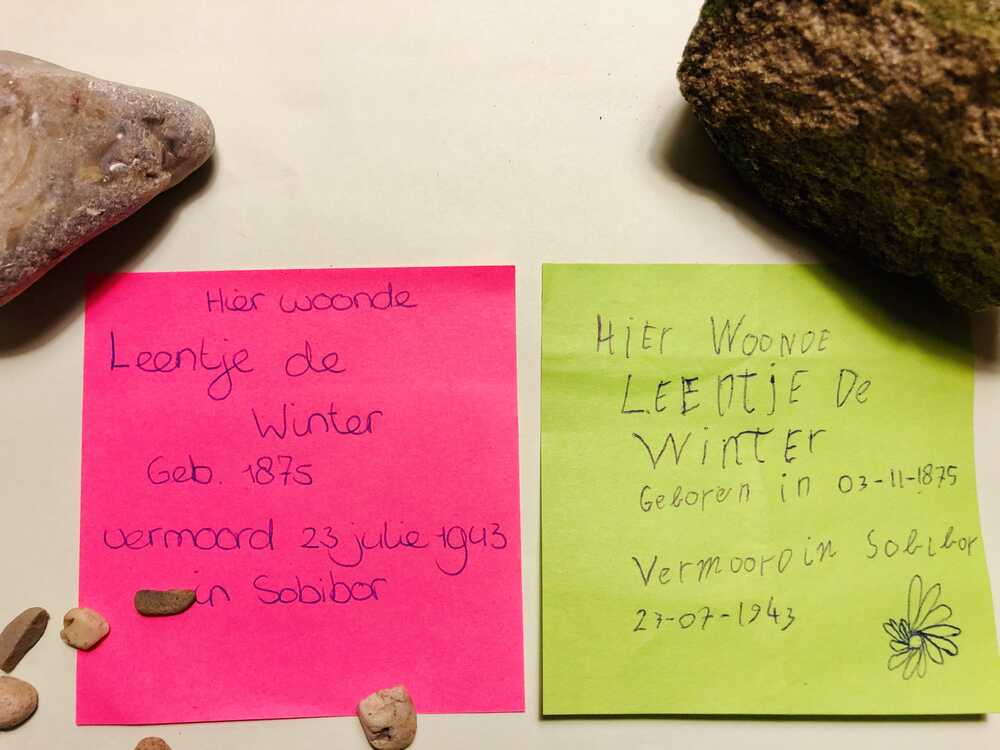 Hier woonde
Leentje de
Winter
Geb. 1875
vermoord 23 julie 1943
in Sobibor
HiER WOONDE
LEENTJE De
WiNTER
Geboren in 03-11-1875
Vermoord in Sobibor
23-07-1943